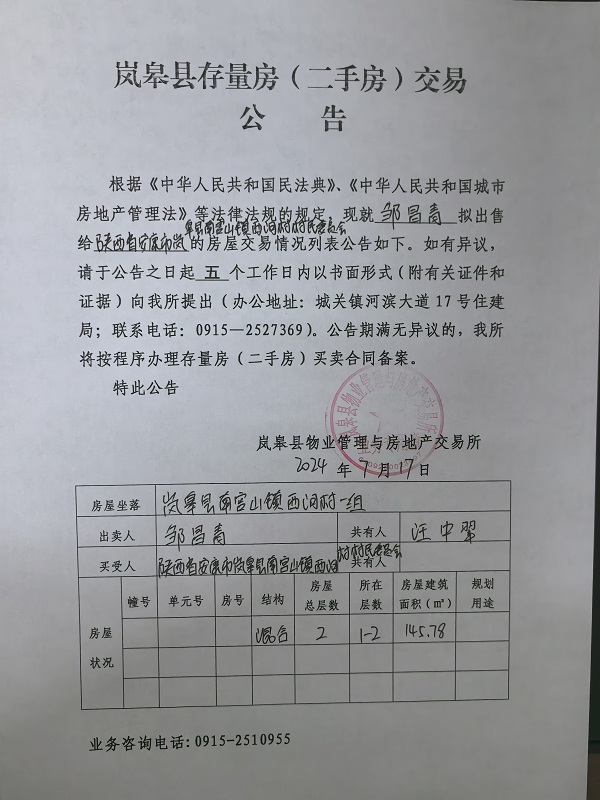 岚皋县存量房（二手房）交易
公 告
根据《中华人民共和国民法典》、《中华人民共和国城市
房地产管理法》等法律法规的规定，现就 邹昌青 拟出售
给陕西省安康市岚皋县南宫山镇西河村村民委员会的房屋交易情况列表公告如下。如有异议，
请于公告之日起 五 个工作日内以书面形式（附有关证件和
证据）向我所提出（办公地址：城关镇河滨大道 17 号住建
局；联系电话：0915—2527369）。公告期满无异议的，我所
将按程序办理存量房（二手房）买卖合同备案。
特此公告
岚皋县物业管理与房地产交易所
2024 年 7 月 17 日
房屋坐落 岚皋县南宫山镇西河村一组
出卖人 邹昌青 共有人 汪中翠
买受人 陕西省安康市岚皋县南宫山镇西河村村民委员会 共有人
房屋状况 幢号 单元号 房号 结构 房屋总层数 所在层数 房屋建筑面积（㎡） 规划用途
混合 2 1-2 145.78
业务咨询电话：0915-2510955